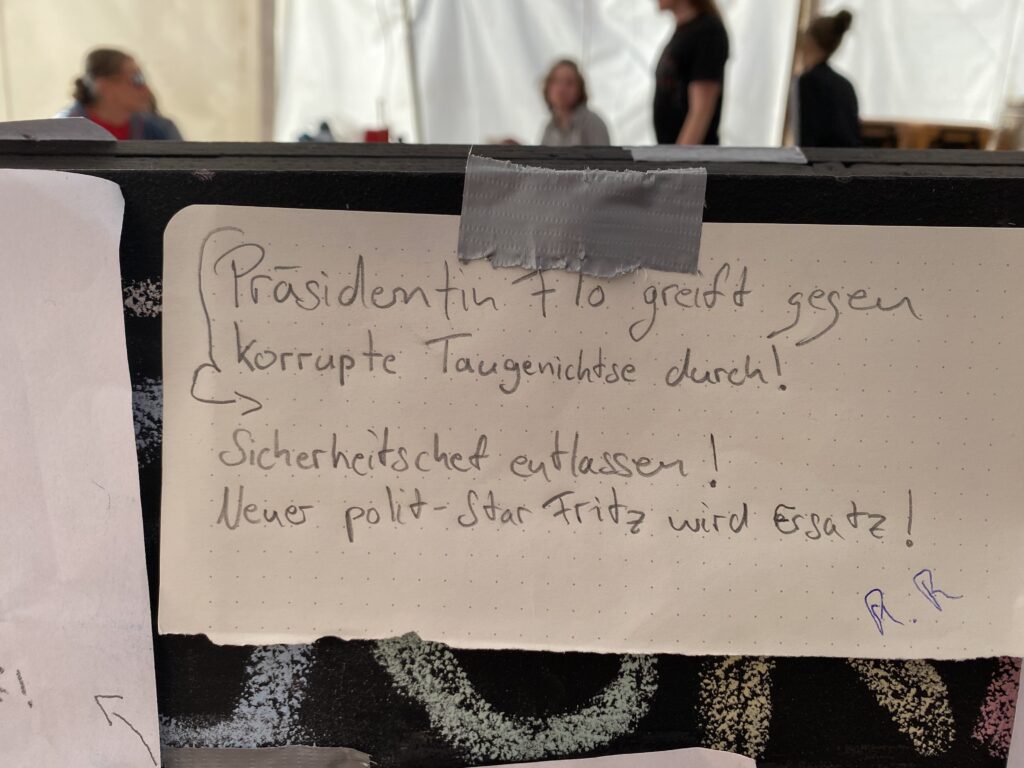 Präsidentin Flo greift gegen
korrupte Taugenichtse durch!
Sicherheitschef entlassen!
Neuer polit-Star Fritz wird Ersatz!
R. R